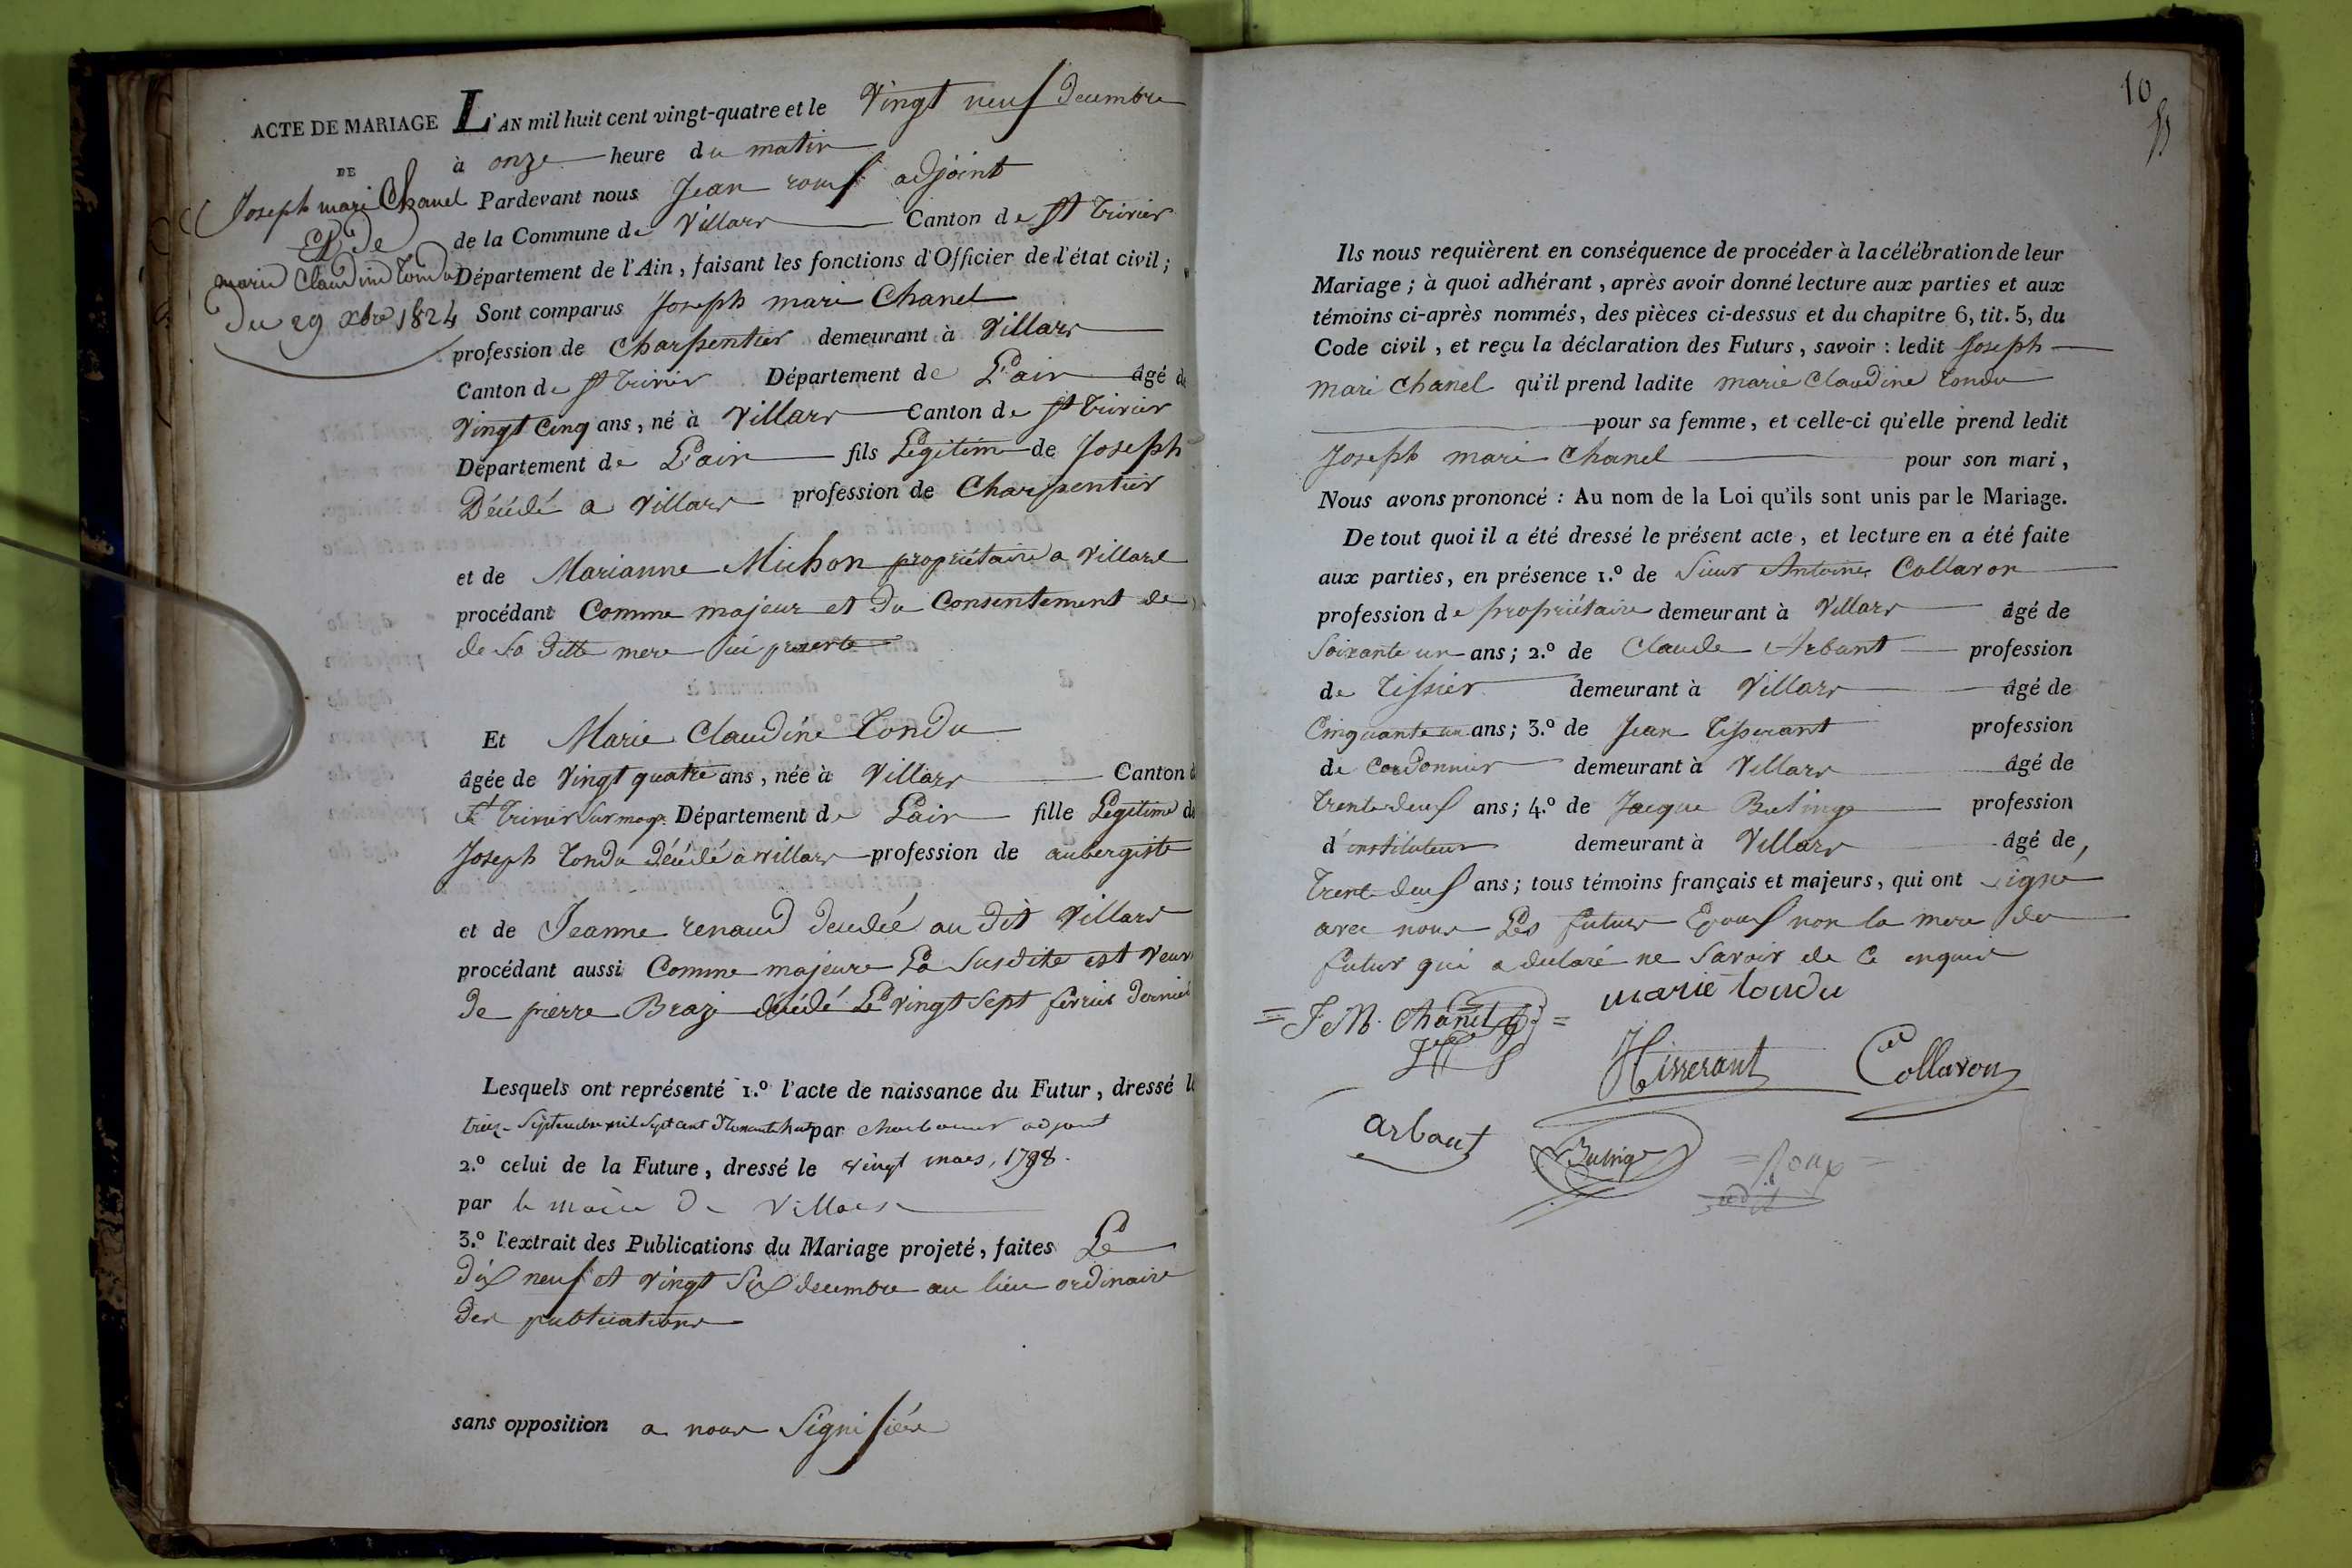 ACTE DE MARIAGE
DE
Joseph mari Chanel
Et de
marie Claudine Tondu
Du 29 xbre 1824
L'AN mil huit cent vingt-quatre et le Vingt neuf decembre
à onze heure du matin
Pardevant nous Jean roux adjoint
de la Commune de Villars Canton de St Trivier
Département de l'Ain, faisant les fonctions d'Officier de l'état civil;
Sont comparus Joseph mari Chanel
profession de Charpentier demeurant à Villars
Canton de St Trivier Département de L'ain âgé de
Vingt Cinq ans, né à Villars Canton de St Trivier
Département de L'ain fils Légitime de Joseph
Décédé a Villars profession de Charpentier
et de Marianne Michon propriétaire a Villars
procédant Comme majeur et du Consentement de
de sa ditte mere ici presente
Et Marie Claudine Tondu
âgée de Vingt quatre ans, née à Villars Canton d
St Trivier Sur moy. Département de L'ain fille Légitime de
Joseph Tondu Décédé a villars profession de aubergiste
et de Jeanne renaud decedée au dit Villars
procédant aussi Comme majeure La Susdite est Veuve
de pierre Brazi décédé Le vingt Sept fevrier dernier
Lesquels ont représenté 1.º l'acte de naissance du Futur, dressé le
treize Septembre mil Sept cent Nonante huit par adjoint
2.º celui de la Future, dressé le vingt mars, 1798.
par le maire De Villars
3.º l'extrait des Publications du Mariage projeté, faites Le
dix neuf et vingt Six decembre au lieu ordinaire
des publications
sans opposition a nous Signifiée
10
Ils nous requièrent en conséquence de procéder à la célébration de leur
Mariage; à quoi adhérant, après avoir donné lecture aux parties et aux
témoins ci-après nommés, des pièces ci-dessus et du chapitre 6, tit. 5, du
Code civil, et reçu la déclaration des Futurs, savoir: ledit Joseph
mari Chanel qu'il prend ladite marie Claudine Tondu
pour sa femme, et celle-ci qu'elle prend ledit
Joseph mari Chanel pour son mari,
Nous avons prononcé: Au nom de la Loi qu'ils sont unis par le Mariage.
De tout quoi il a été dressé le présent acte, et lecture en a été faite
aux parties, en présence 1.º de Sieur Antoine Collavon
profession de propriétaire demeurant à Villars âgé de
Soixante un ans; 2.º de Claude Arbant profession
de Tissier demeurant à Villars âgé de
Cinquante un ans; 3.º de Jean Tisserant profession
de Cordonnier demeurant à Villars âgé de
Trente deux ans; 4.º de Jacque Butinge profession
d'instituteur demeurant à Villars âgé de,
Trente deux ans; tous témoins français et majeurs, qui ont Signé
avec nous Les futurs Epoux non la mere du
futur qui a declaré ne Savoir de Ce enquis
= J M. Chanel =
marie tondu
Tisserant
Collavon
arbant
Butinge
= Roux =
adjt